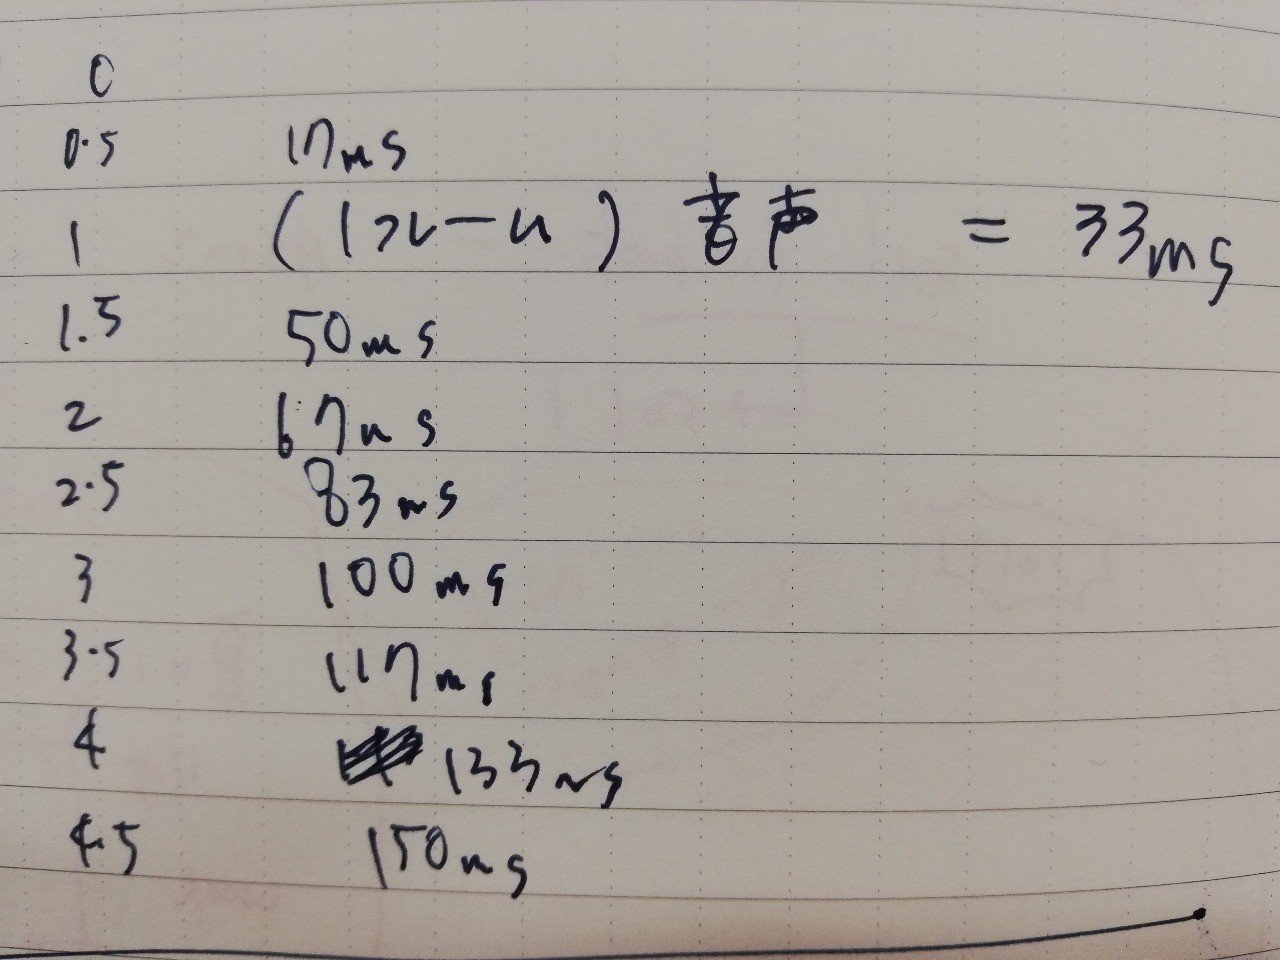 0
0.5 17ms
1 (1フレーム) 音声 = 33ms
1.5 50ms
2 67ms
2.5 83ms
3 100ms
3.5 117ms
4 133ms
4.5 150ms